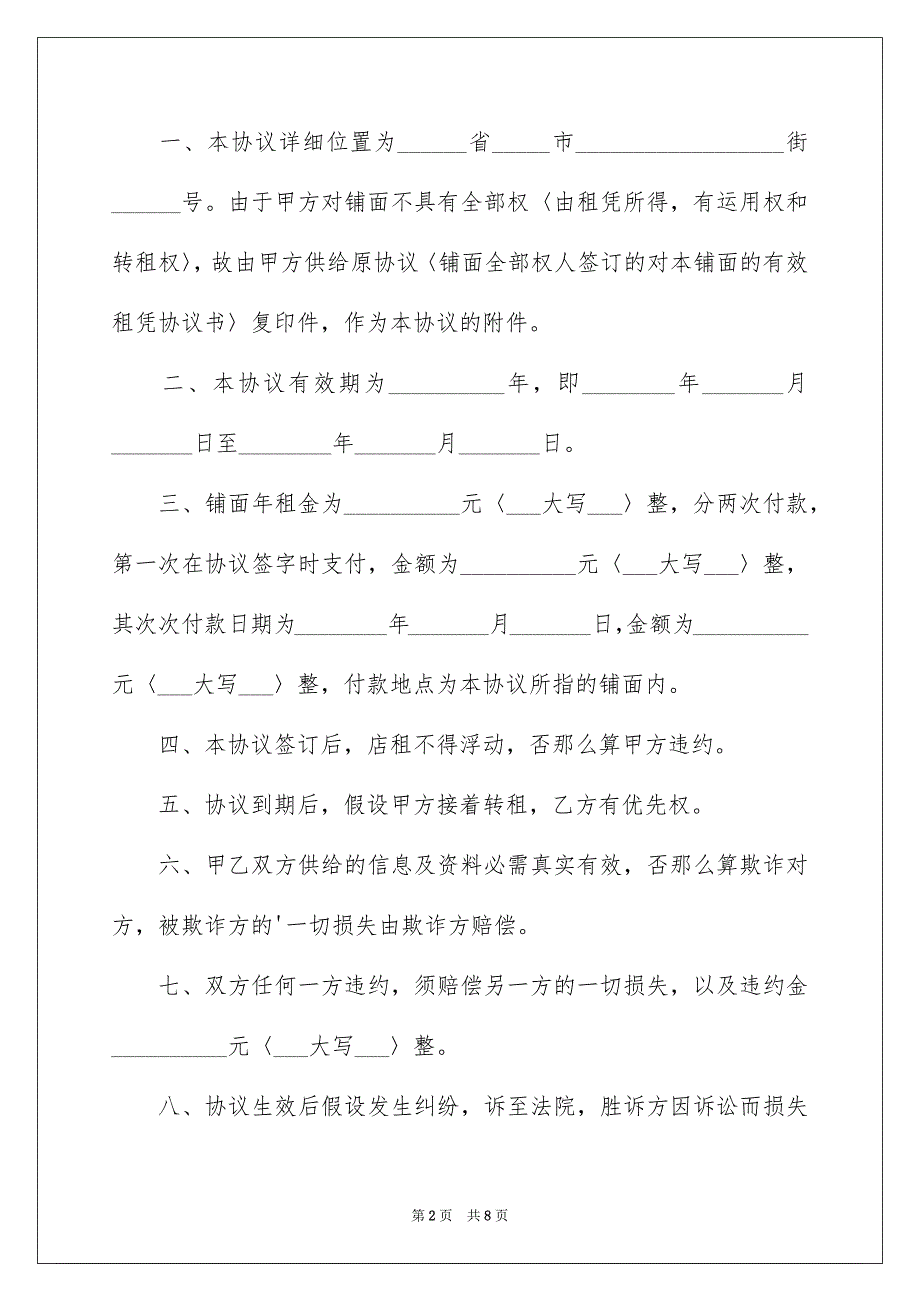 一、本协议详细位置为______省_____市__________________街
______号。由于甲方对铺面不具有全部权〈由租凭所得，有运用权和
转租权〉，故由甲方供给原协议〈铺面全部权人签订的对本铺面的有效
租凭协议书〉复印件，作为本协议的附件。
二、本协议有效期为__________年，即________年_______月
_______日至________年_______月_______日。
三、铺面年租金为__________元〈___大写___〉整，分两次付款，
第一次在协议签字时支付，金额为__________元〈___大写___〉整，
其次次付款日期为________年_______月_______日,金额为__________
元〈___大写___〉整，付款地点为本协议所指的铺面内。
四、本协议签订后，店租不得浮动，否那么算甲方违约。
五、协议到期后，假设甲方接着转租，乙方有优先权。
六、甲乙双方供给的信息及资料必需真实有效，否那么算欺诈对
方，被欺诈方的'一切损失由欺诈方赔偿。
七、双方任何一方违约，须赔偿另一方的一切损失，以及违约金
__________元〈___大写___〉整。
八、协议生效后假设发生纠纷，诉至法院，胜诉方因诉讼而损失
第 2 页 共 8 页